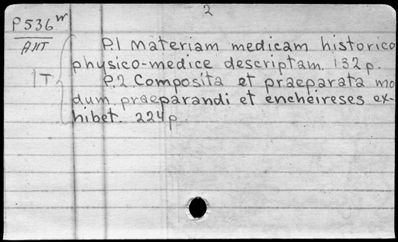 2
P536w
AHT
1T
P.1 Materiam medicam historico
physico-medice descriptam. 132p.
P.2 Composita et praeparata mo
dum praeparandi et encheireses ex-
hibet. 224p.